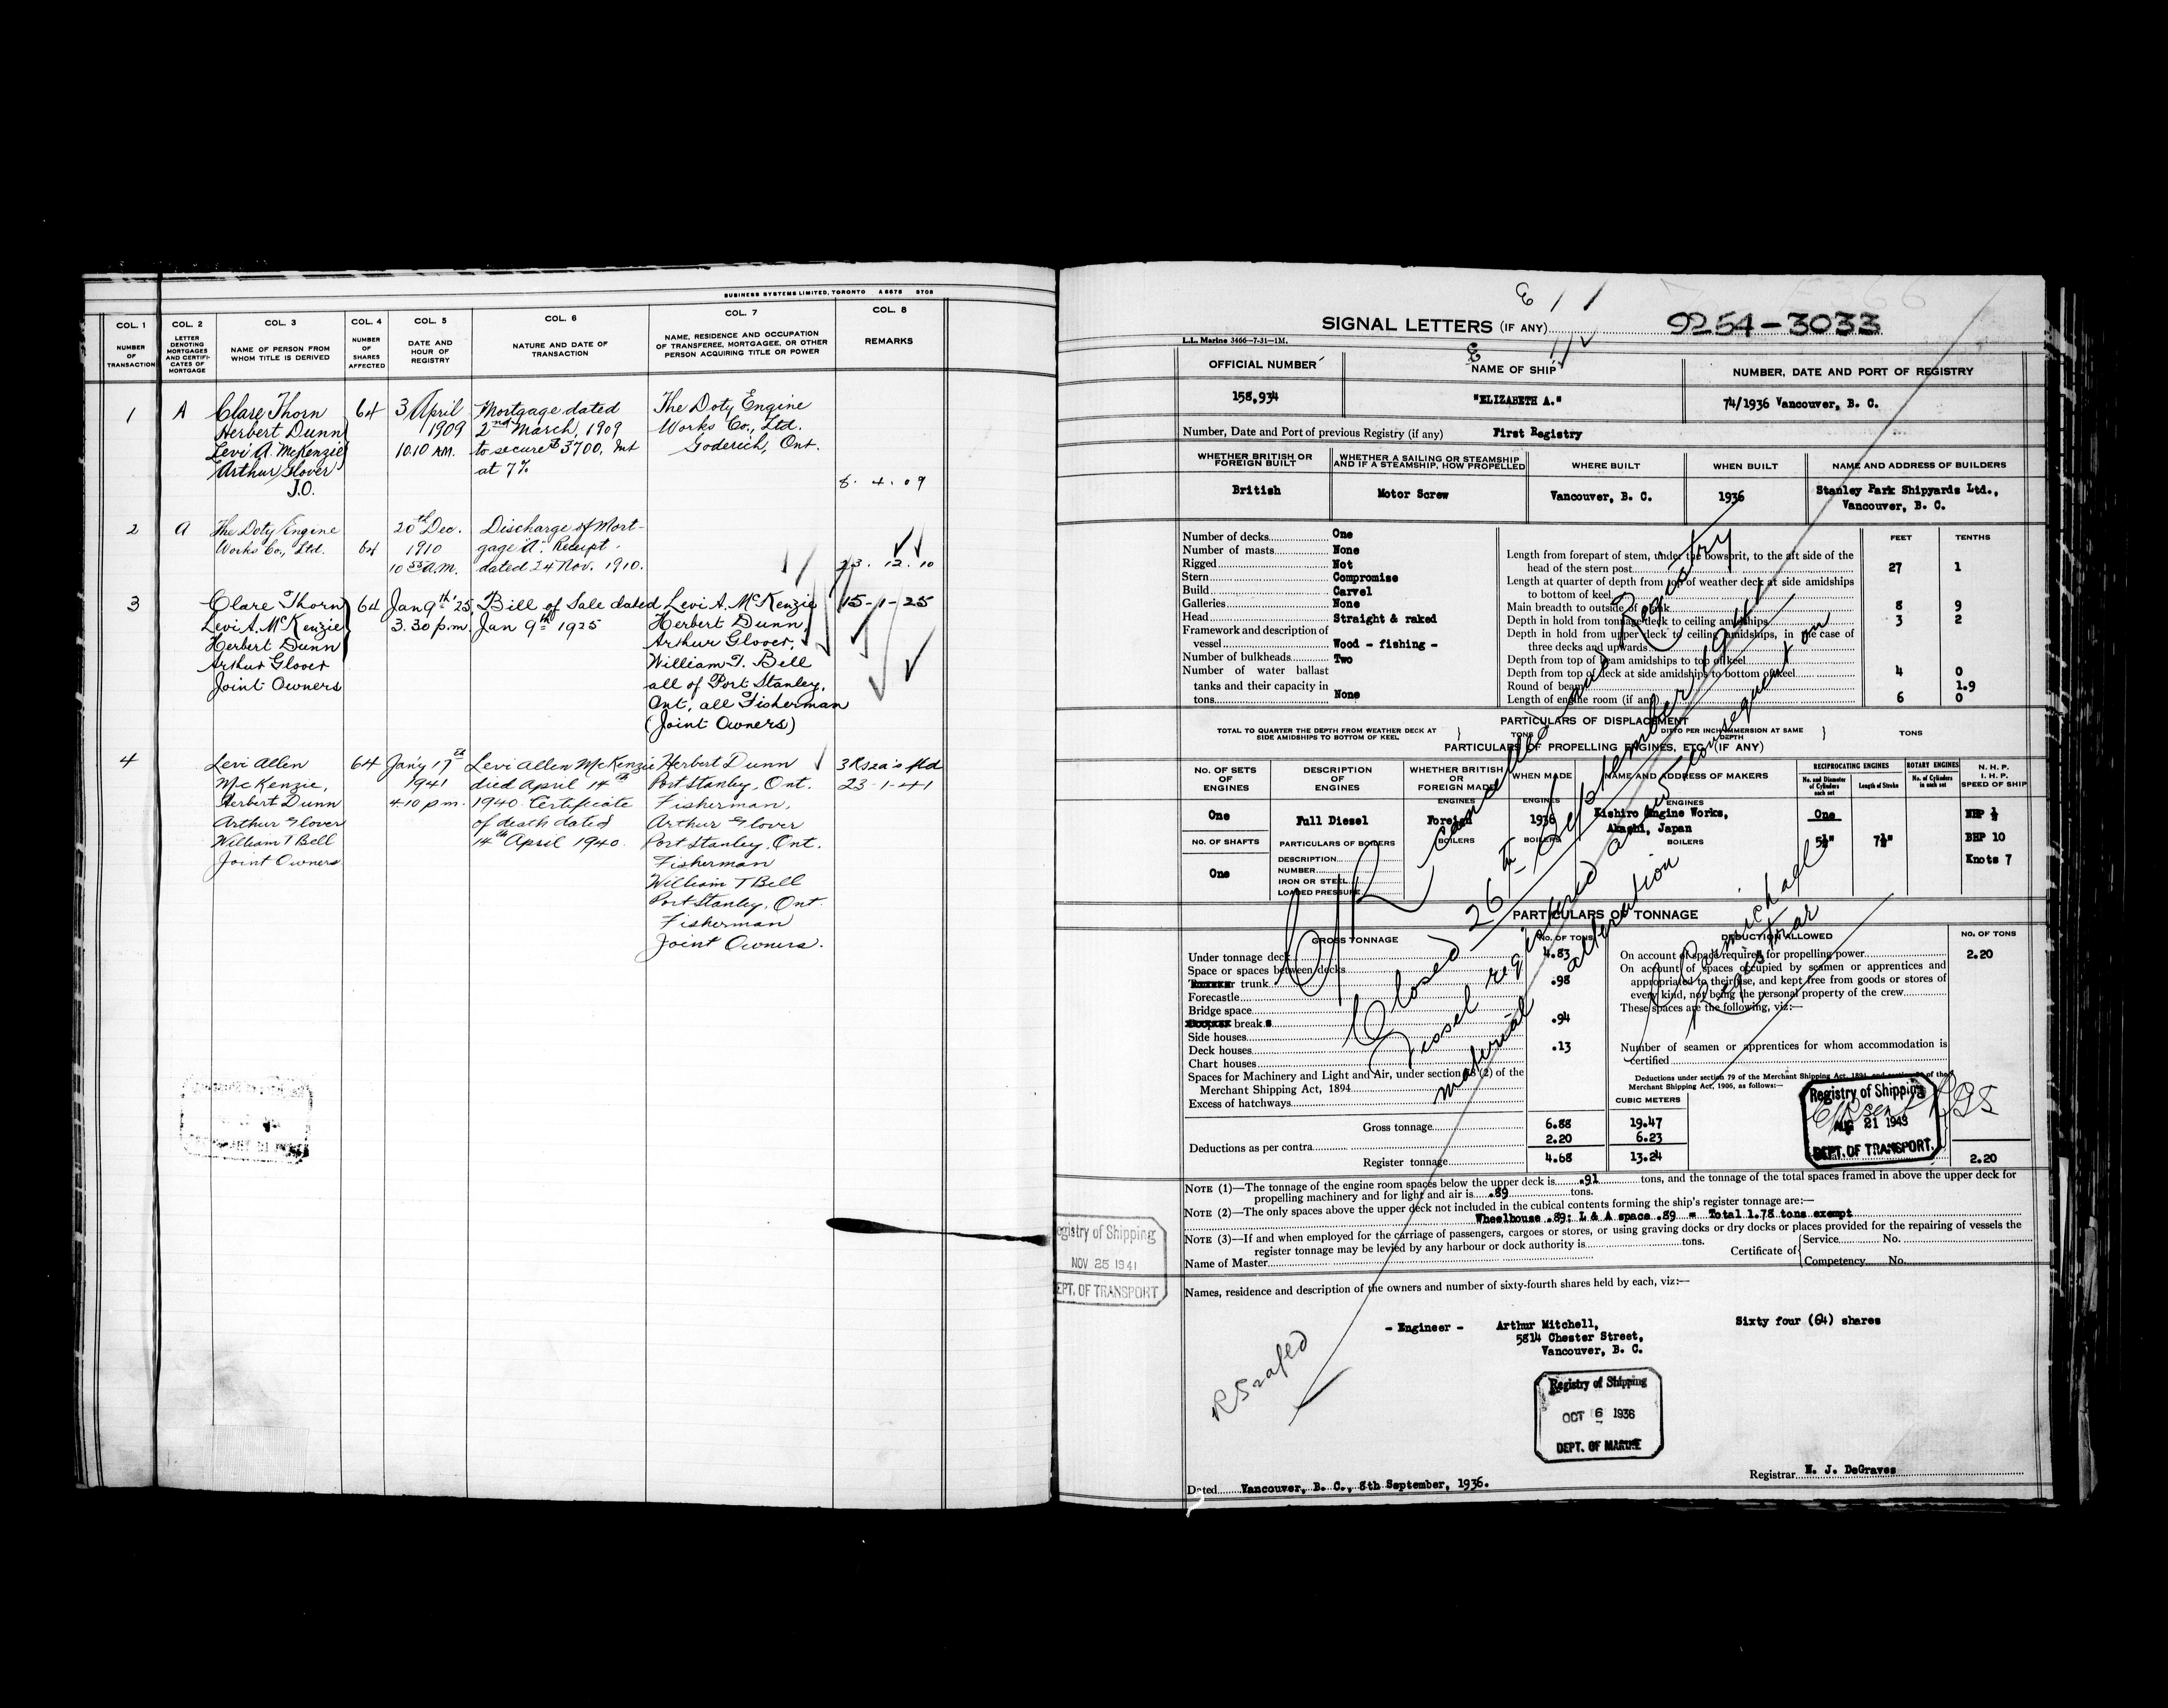 BUSINESS SYSTEMS LIMITED, TORONTO A 6675 3708
COL. 1 COL. 2 COL. 3 COL. 4 COL. 5 COL. 6 COL. 7 COL. 8
NUMBER OF TRANSACTION
LETTER DENOTING MORTGAGES AND CERTIFICATES OF MORTGAGE
NAME OF PERSON FROM WHOM TITLE IS DERIVED
NUMBER OF SHARES AFFECTED
DATE AND HOUR OF REGISTRY
NATURE AND DATE OF TRANSACTION
NAME, RESIDENCE AND OCCUPATION OF TRANSFEREE, MORTGAGEE, OR OTHER PERSON ACQUIRING TITLE OR POWER
REMARKS
1 A Clare Thorn 64 3 April Mortgage dated The Doty Engine
Herbert Dunn 1909 2nd March, 1909 Works Co., Ltd.
Levi A. McKenzie 10.10 AM. to secure $3700, Int Goderich, Ont.
Arthur Glover at 7%
J.O. 6. 4. 09
2 A The Doty Engine 20th Dec. Discharge of Mort-
Works Co., Ltd. 64 1910 gage "A". Receipt
10 55 a.m. dated 24 Nov. 1910. 23. 12. 10
3 Clare Thorn 64 Jan 9th '25, Bill of Sale dated Levi A. McKenzie 15-1-25
Levi A. McKenzie 3.30 p.m. Jan 9th 1925 Herbert Dunn,
Herbert Dunn Arthur Glover,
Arthur Glover William T. Bell
Joint Owners all of Port Stanley,
Ont, all Fisherman
(Joint Owners)
4 Levi Allen 64 Jan'y 17th Levi Allen McKenzie Herbert Dunn
McKenzie, 1941 died April 14th Port Stanley, Ont. 23-1-41
Herbert Dunn 4-10 p.m. 1940. Certificate Fisherman,
Arthur Glover of death dated Arthur Glover
William T Bell 14th April 1940. Port Stanley, Ont.
Joint Owners Fisherman
William T Bell
Port Stanley, Ont.
Fisherman
Joint Owners.
Registry of Shipping
NOV 25 1941
DEPT. OF TRANSPORT
SIGNAL LETTERS (IF ANY) 9254-3033
L.L. Marine 3466—7-31—1M.
OFFICIAL NUMBER NAME OF SHIP NUMBER, DATE AND PORT OF REGISTRY
158,934 "ELIZABETH A." 74/1936 Vancouver, B. C.
Number, Date and Port of previous Registry (if any) First Registry
WHETHER BRITISH OR FOREIGN BUILT
WHETHER A SAILING OR STEAMSHIP AND IF A STEAMSHIP, HOW PROPELLED
WHERE BUILT WHEN BUILT NAME AND ADDRESS OF BUILDERS
British Motor Screw Vancouver, B. C. 1936 Stanley Park Shipyards Ltd.,
Vancouver, B. C.
Number of decks One
Number of masts None
Rigged Not
Stern Compromise
Build Carvel
Galleries None
Head Straight & raked
Framework and description of
vessel Wood - fishing -
Number of bulkheads Two
Number of water ballast
tanks and their capacity in
tons None
FEET TENTHS
Length from forepart of stem, under the bowsprit, to the aft side of the
head of the stern post 27 1
Length at quarter of depth from top of weather deck at side amidships
to bottom of keel
Main breadth to outside of plank 8 9
Depth in hold from tonnage deck to ceiling amidships 3 2
Depth in hold from upper deck to ceiling amidships, in the case of
three decks and upwards
Depth from top of beam amidships to top of keel
Depth from top of deck at side amidships to bottom of keel 4 0
Round of beam 1.9
Length of engine room (if any) 6 0
PARTICULARS OF DISPLACEMENT
TOTAL TO QUARTER THE DEPTH FROM WEATHER DECK AT SIDE AMIDSHIPS TO BOTTOM OF KEEL } TONS
DITTO PER INCH IMMERSION AT SAME DEPTH } TONS
PARTICULARS OF PROPELLING ENGINES, ETC. (IF ANY)
NO. OF SETS OF ENGINES
DESCRIPTION OF ENGINES
WHETHER BRITISH OR FOREIGN MADE
WHEN MADE
NAME AND ADDRESS OF MAKERS
RECIPROCATING ENGINES
No. and Diameter of Cylinders each set
Length of Stroke
ROTARY ENGINES
No. of Cylinders in each set
N. H. P.
I. H. P.
SPEED OF SHIP
ENGINES ENGINES ENGINES
One Full Diesel Foreign 1936 Kishiro Engine Works, One
Akashi, Japan
NO. OF SHAFTS PARTICULARS OF BOILERS BOILERS BOILERS BOILERS 5½" 7½" BHP 10
One Knots 7
DESCRIPTION
NUMBER
IRON OR STEEL
LOADED PRESSURE
PARTICULARS OF TONNAGE
GROSS TONNAGE NO. OF TONS DEDUCTION ALLOWED NO. OF TONS
Under tonnage deck 4.83
Space or spaces between decks
trunk .98
Forecastle
Bridge space
breaks .94
Side houses
Deck houses .13
Chart houses
Spaces for Machinery and Light and Air, under section 78 (2) of the
Merchant Shipping Act, 1894
Excess of hatchways
On account of space required for propelling power 2.20
On account of spaces occupied by seamen or apprentices and
appropriated to their use, and kept free from goods or stores of
every kind, not being the personal property of the crew
These spaces are the following, viz:—
Number of seamen or apprentices for whom accommodation is
certified
Deductions under section 79 of the Merchant Shipping Act, 1894, and section of the
Merchant Shipping Act, 1906, as follows:—
CUBIC METERS
Gross tonnage 6.88 19.47
Deductions as per contra 2.20 6.23
Register tonnage 4.68 13.24 2.20
Registry of Shipping
AUG 21 1943
DEPT. OF TRANSPORT.
Certificate cancelled and Registry
Closed 26th September, 1941
Vessel registered anew consequent on
material alteration
Carmichael
Registrar
NOTE (1)—The tonnage of the engine room spaces below the upper deck is .91 tons, and the tonnage of the total spaces framed in above the upper deck for
propelling machinery and for light and air is .89 tons.
NOTE (2)—The only spaces above the upper deck not included in the cubical contents forming the ship's register tonnage are:—
Wheelhouse .89; L & A space .89 = Total 1.78 tons exempt
NOTE (3)—If and when employed for the carriage of passengers, cargoes or stores, or using graving docks or dry docks or places provided for the repairing of vessels the
register tonnage may be levied by any harbour or dock authority is tons.
Name of Master Certificate of { Service No.
Competency No.
Names, residence and description of the owners and number of sixty-fourth shares held by each, viz:—
- Engineer - Arthur Mitchell, Sixty four (64) shares
5814 Chester Street,
Vancouver, B. C.
Registry of Shipping
OCT 6 1936
DEPT. OF MARINE
Registrar N. J. DeGraves
Dated Vancouver, B. C., 8th September, 1936.